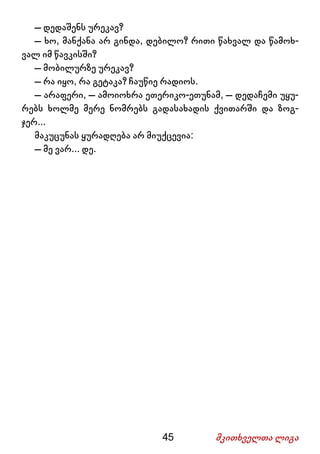 — დედაშენს ურეკავ?
— ხო, მანქანა არ გინდა, დებილო? რითი წახვალ და წამოხ-
ვალ იმ წავკისში?
— მობილურზე ურეკავ?
— რა იყო, რა გეტაკა? ჩაუწიე რადიოს.
— არაფერი, — ამოიოხრა ეთერიკო-ეთუნამ, — დედაჩემი უყუ-
რებს ხოლმე მერე ნომრებს გადასახადის ქვითარში და ზოგ-
ჯერ...
მაკუცუნას ყურადღება არ მიუქცევია:
— მე ვარ... დე.
45 მკითხველთა ლიგა